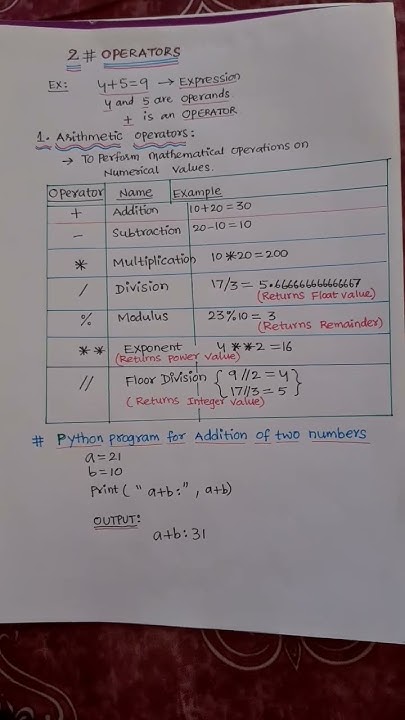 2 # OPERATORS
Ex: 4+5=9 → Expression
4 and 5 are operands.
+ is an OPERATOR.
1. Arithmetic operators:
→ To Perform mathematical operations on
Numerical values.
Operator Name Example
+ Addition 10+20=30
- Subtraction 20-10=10
* Multiplication 10*20=200
/ Division 17/3=5.66666666666667
(Returns Float value)
% Modulus 23%10=3
(Returns Remainder)
** Exponent 4**2=16
(Returns power value)
// Floor Division { 9//2=4
17//3=5 }
(Returns Integer value)
# Python program for Addition of two numbers
a=21
b=10
Print("a+b:", a+b)
OUTPUT:
a+b:31